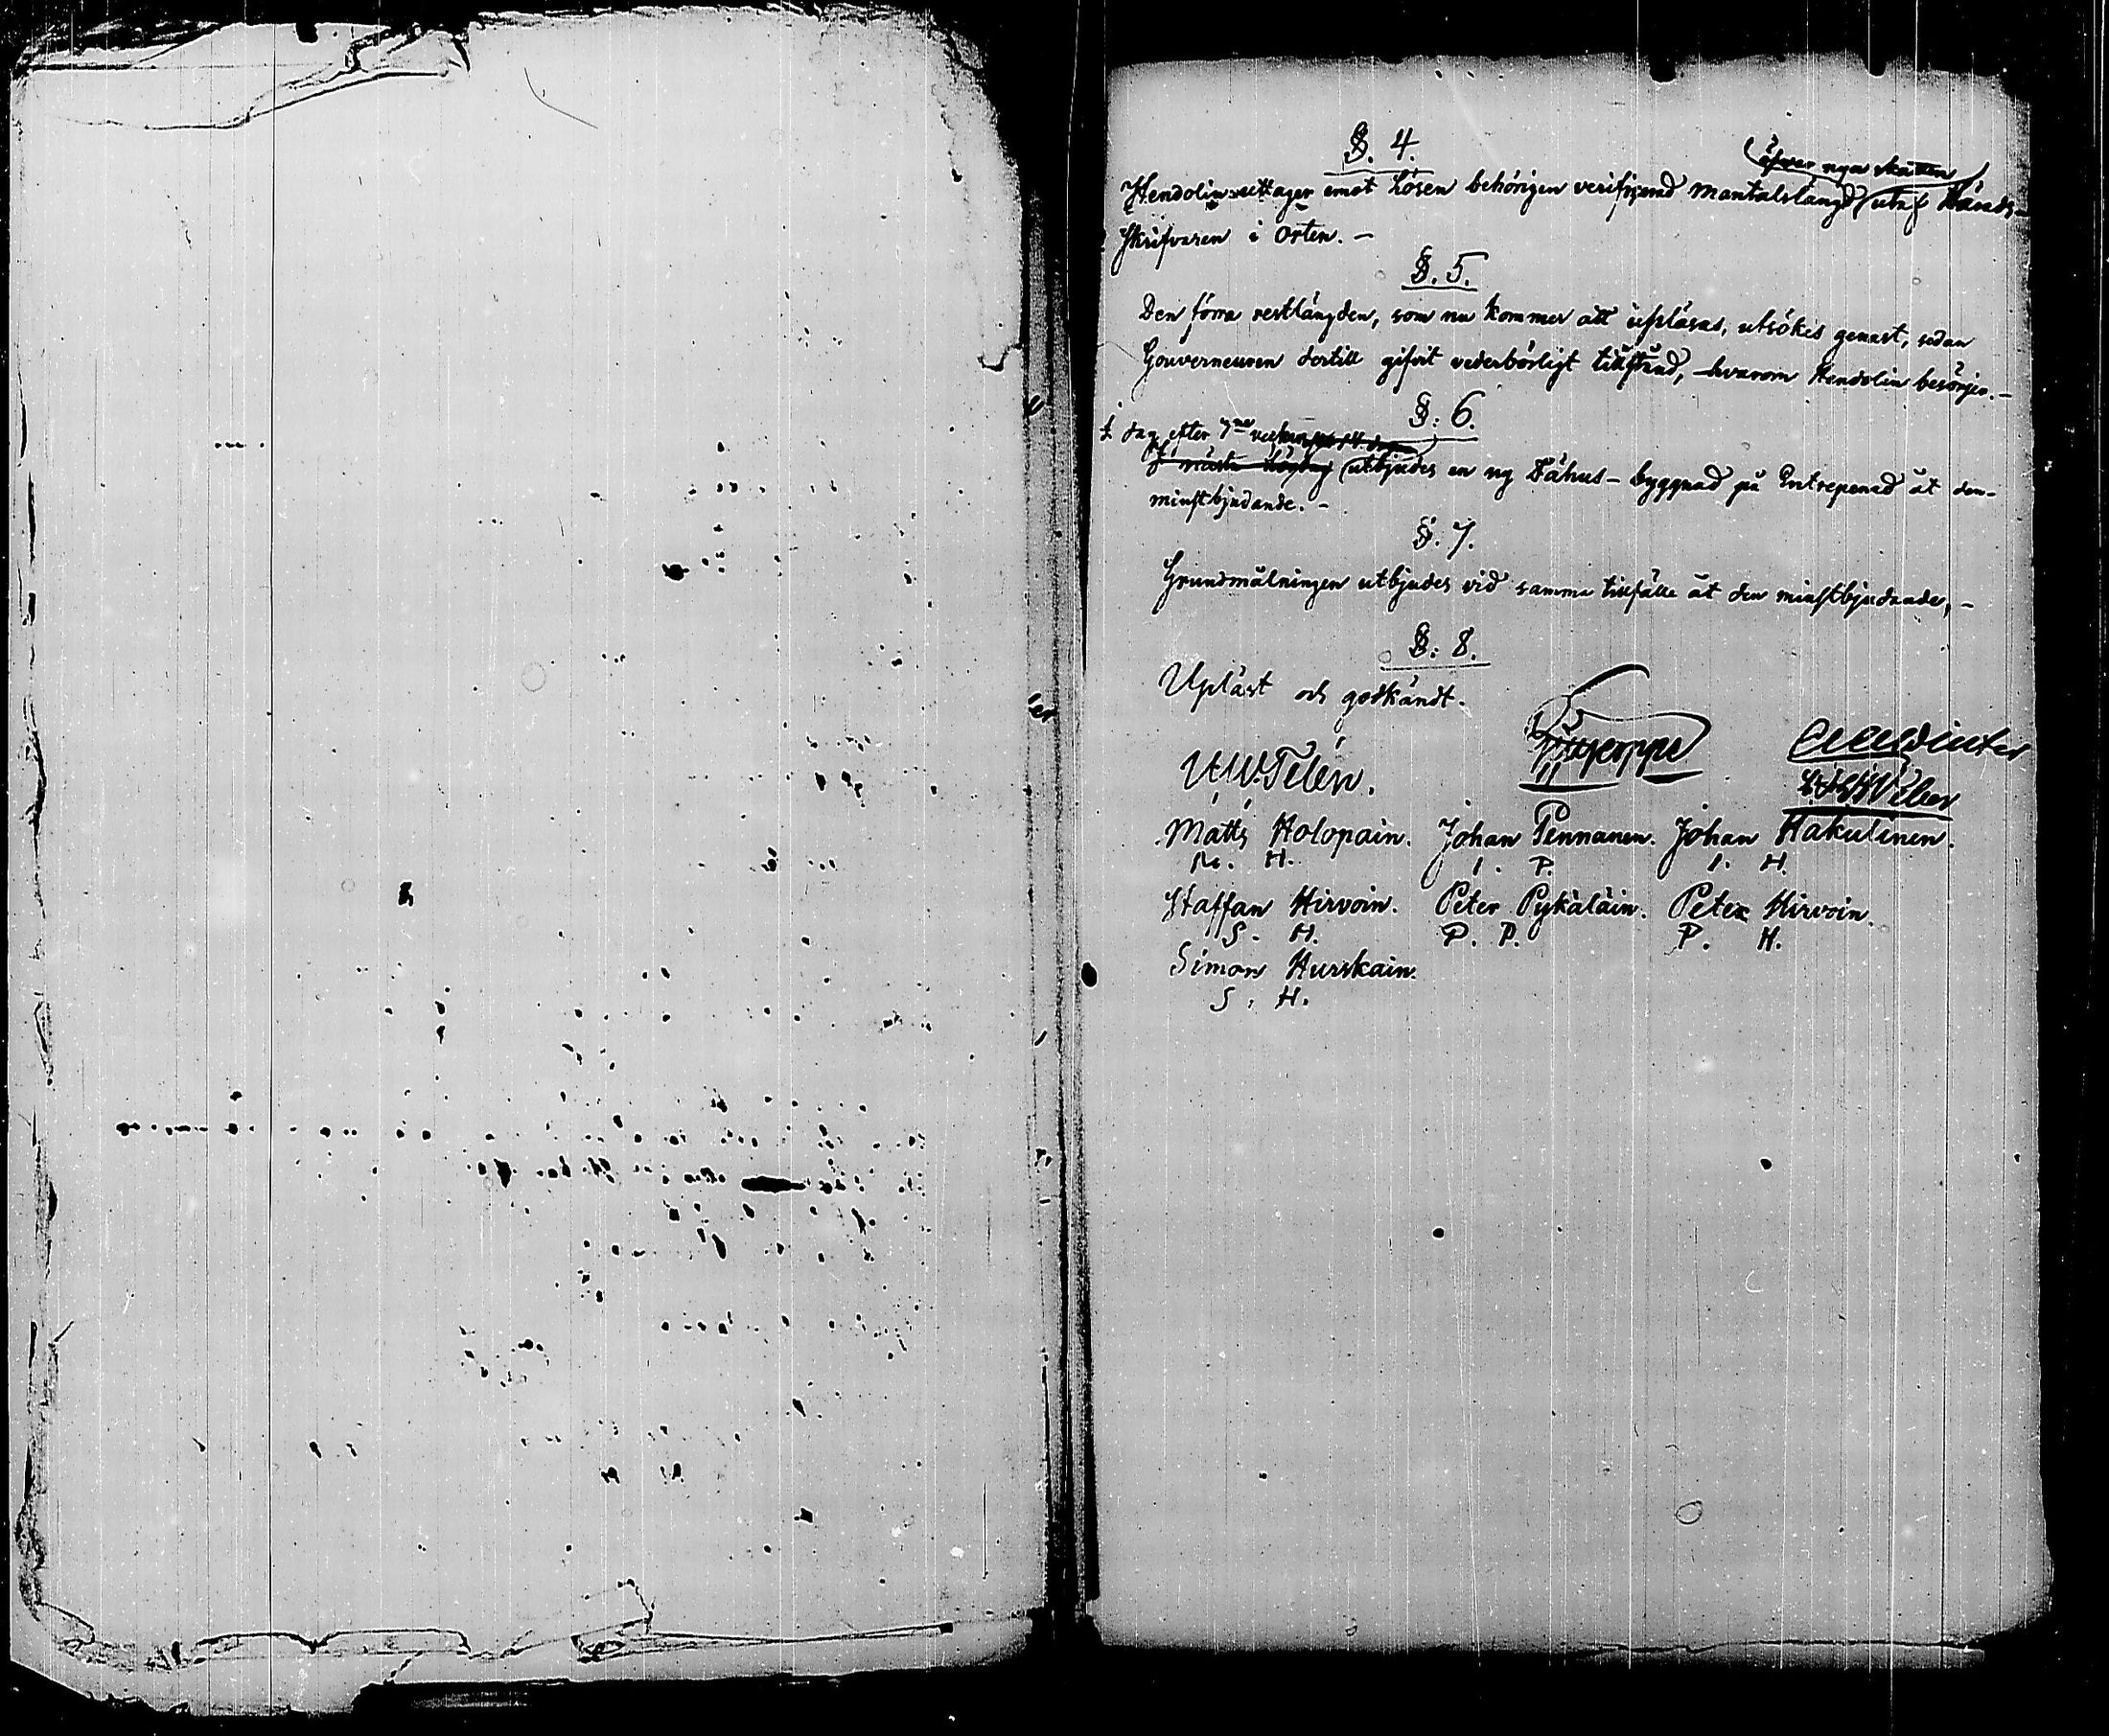 §. 4.
öfver nya skatten
Hendolin uttager emot Lösen behörigen verificerad Mantalslängd utaf Härads-
Skrifvaren i Orten. -
§. 5.
Den förra restlängden, som nu kommer att upläsas, utsökes genast, sedan
Gouverneuren dertill gifvit vederbörligt tillstånd, - hvarom Hendolin besörjer. -
§: 6.
dag efter 7ne veckor
utbjudes en ny Fähus- byggnad på Entrepenad åt den-
minstbjudande. -
§. 7.
Grundmålningen utbjudes vid samma tillfälle åt den minstbjudande, -
§: 8.
Upläst och godkändt.
Telén.
Matts Holopain. Johan Pennanen. Johan Hakulinen.
M. H. I. P. I. H.
Staffan Hirvoin. Peter Pykäläin. Peter Hirvoin.
S. H. P. P. P. H.
Simon Hurskain.
S. H.